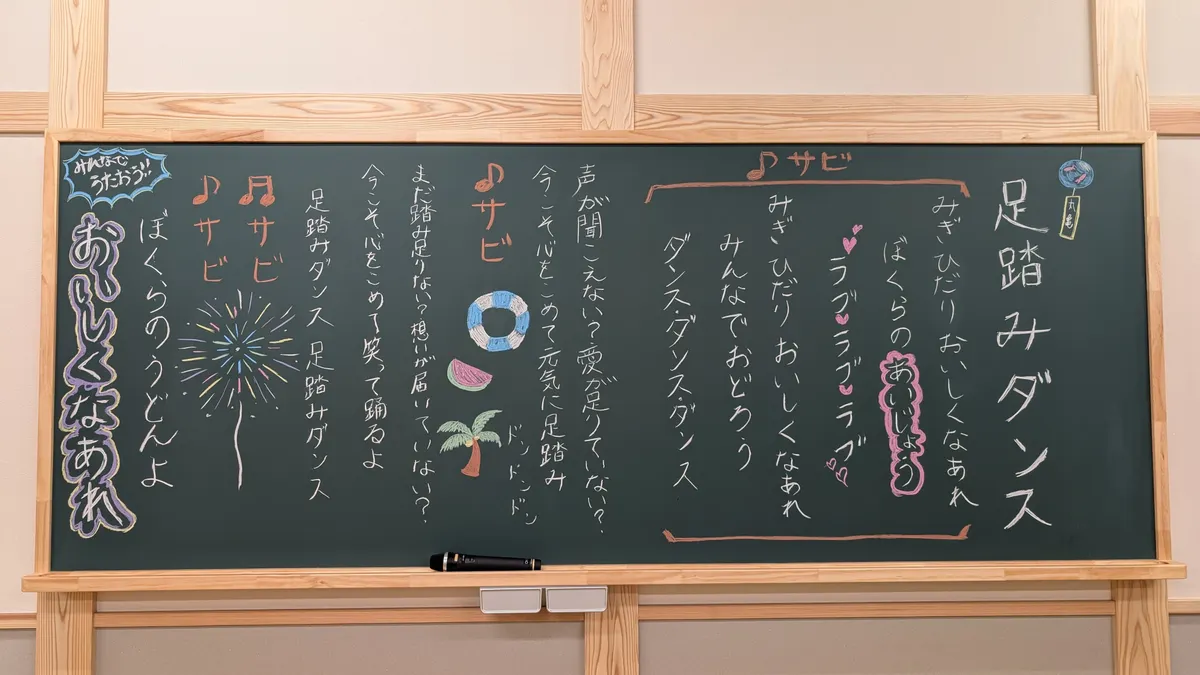 丸亀
足踏みダンス
♪サビ
みぎひだりおいしくなあれ
ぼくらのあいじょう
ラブラブラブ
みぎひだりおいしくなあれ
みんなでおどろう
ダンス・ダンス・ダンス
声が聞こえない?愛が足りていない?
今こそ心をこめて元気に足踏み
ドンドンドンドン
♪サビ
まだ踏み足りない?想いが届いていない?
今こそ心をこめて笑って踊るよ
足踏みダンス 足踏みダンス
♬サビ
♪サビ
ぼくらのうどんよ
おいしくなあれ
みんなで
うたおう!!